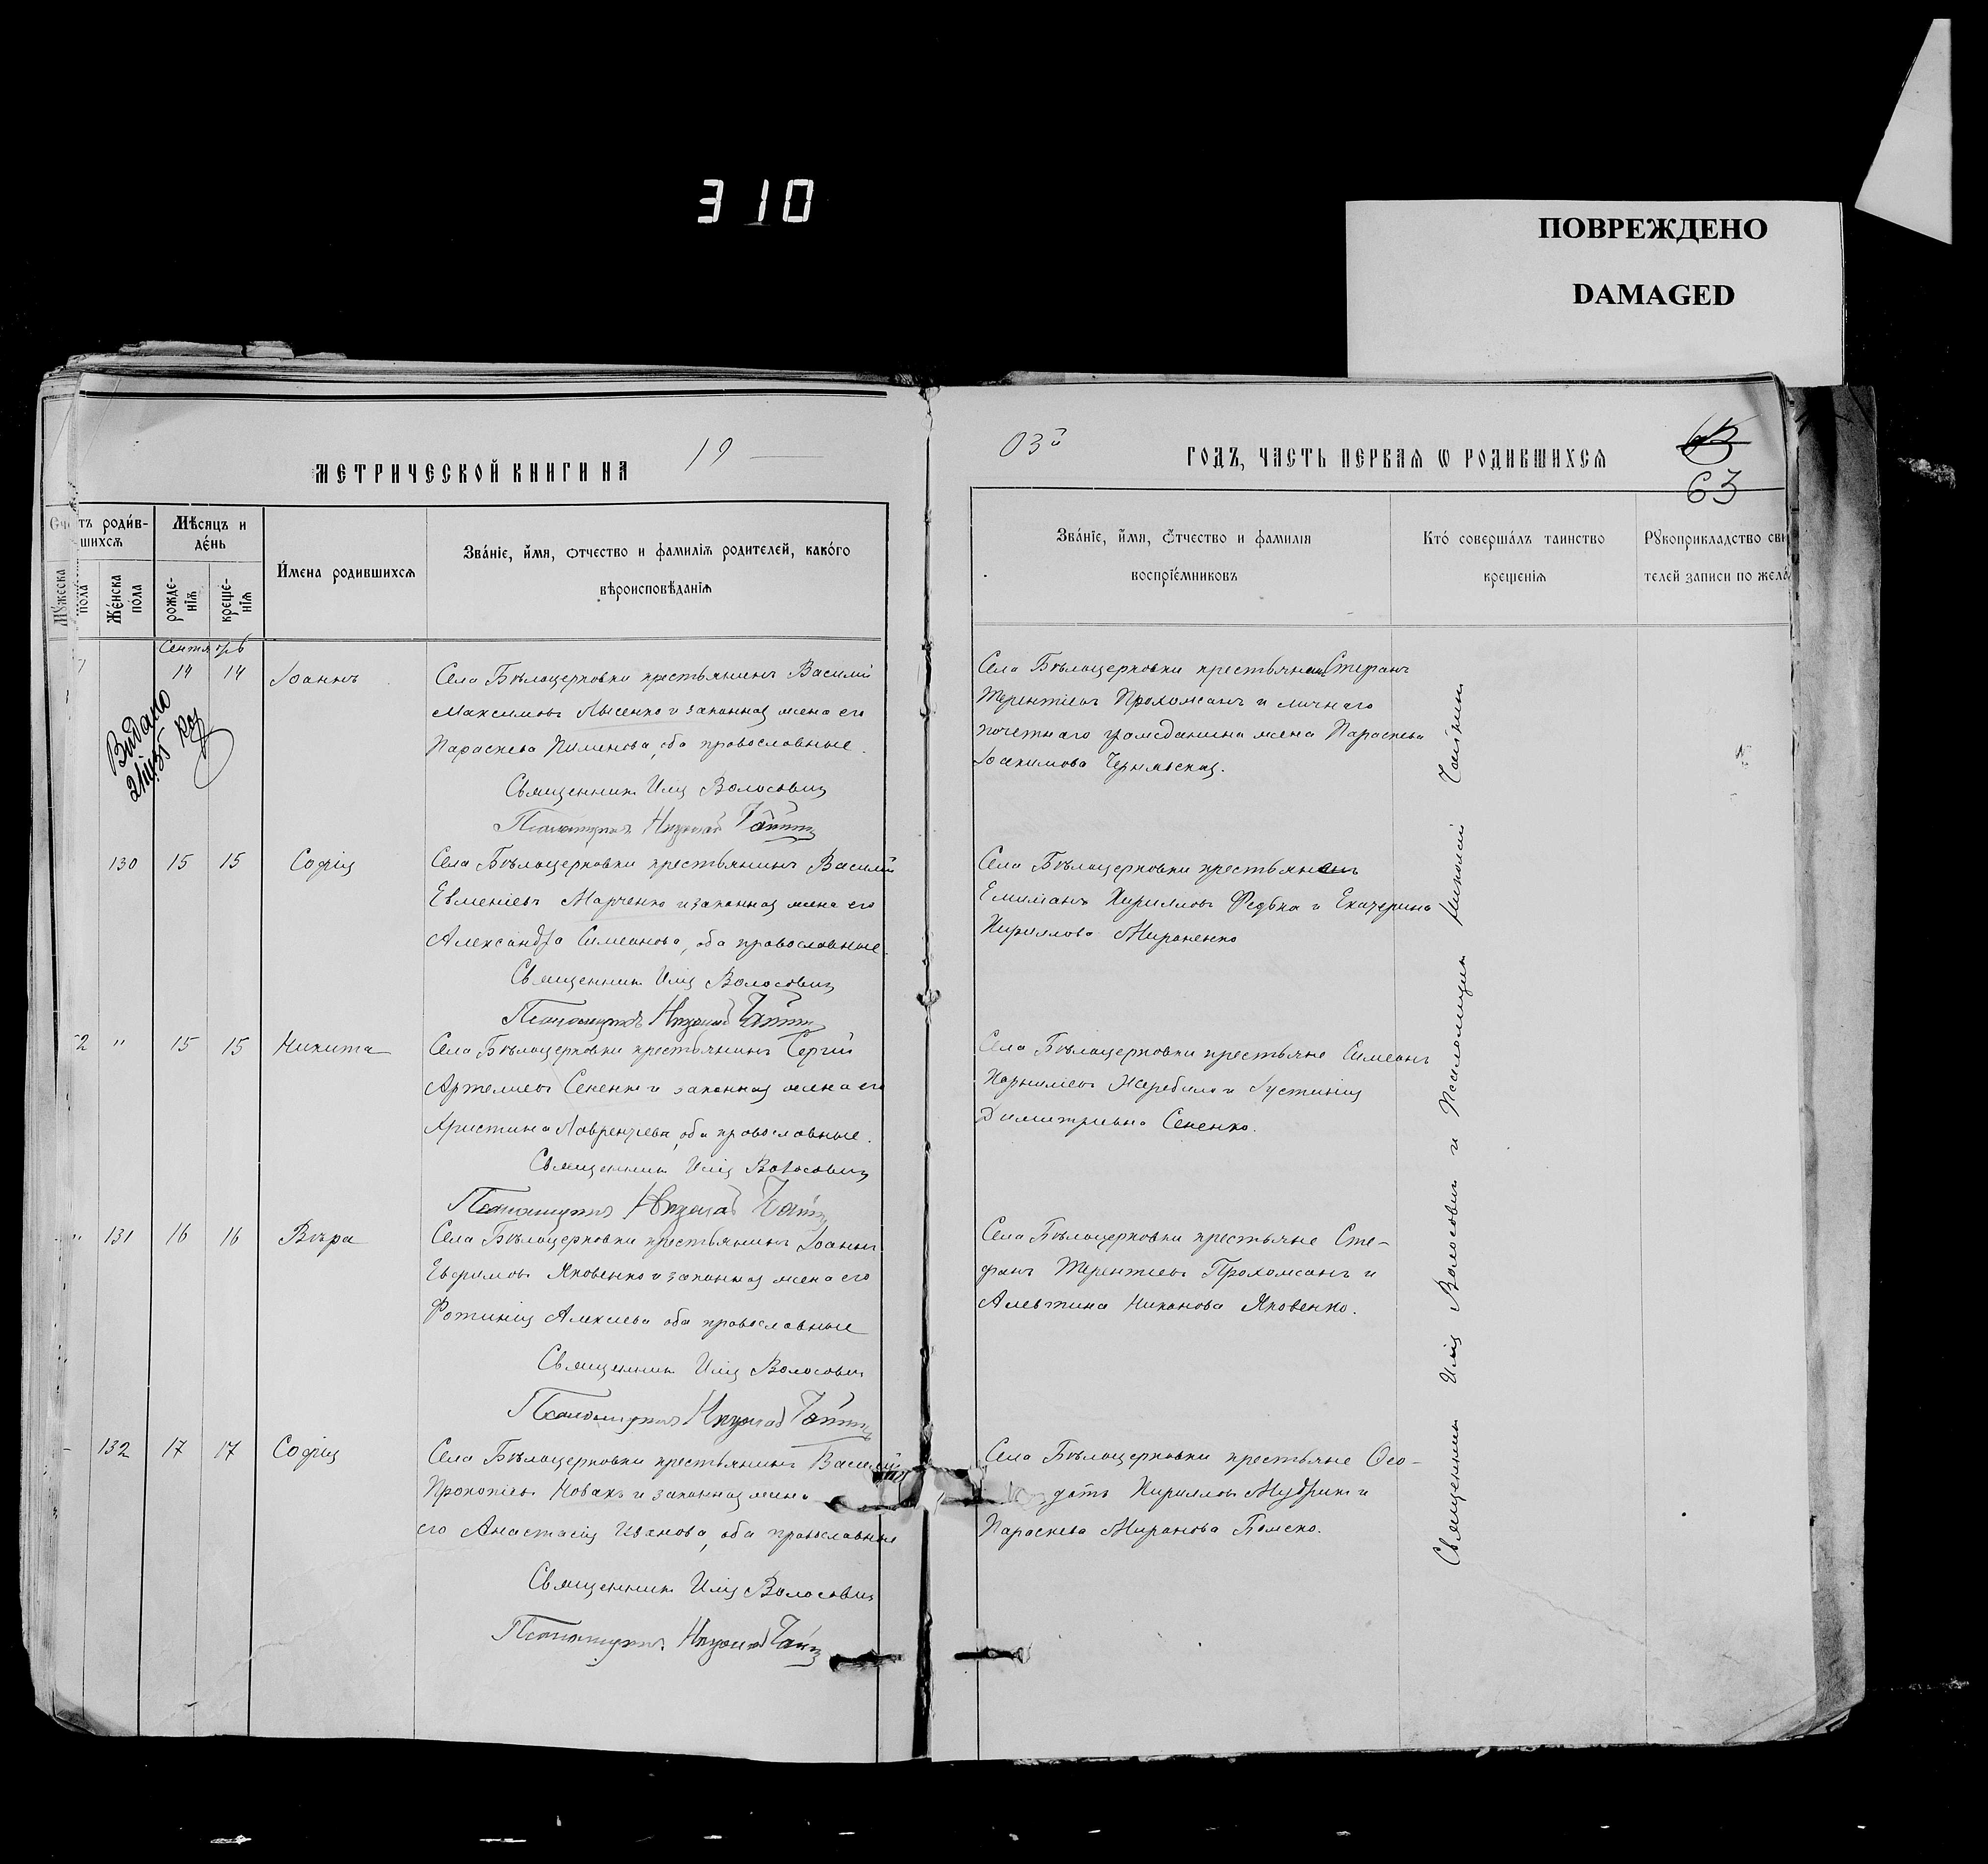 310
ПОВРЕЖДЕНО
DAMAGED
МЕТРИЧЕСКОЙ КНИГИ НА 19
03й ГОДЪ, ЧАСТЬ ПЕРВАЯ Ѡ РОДИВШИХСЯ
63
тъ роди́в-
шихсѧ
Мꙋ́жеска по́ла
Же́нска по́ла
Мѣсяцъ и де́нь
рожде-нїѧ
креще-нїѧ
И́мена родившихсѧ
Зва́нїе, и́мя, ѻтчество и фамилїѧ родителей, како́го
вѣроисповѣ́данїѧ
Зва́нїе, и́мя, ѻ́тчество и фамилїя
воспрїе́мниковъ
Кто́ соверша́лъ таинство
крещенїѧ
Рꙋкоприкладство сви
телей записи по жела
Сентябрь
14 14 Іоаннъ
Села Бѣлоцерковки крестьянинъ Василій
Максимовъ Лысенко и законная жена его
Параскева Пименова, оба православные.
Священникъ Илія Волосовичъ
Псаломщикъ Николай
Видано
Села Бѣлоцерковки крестьянинъ Стефанъ
Терентіевъ Прохожанъ и личнаго
почетнаго гражданина жена Параскева
Іоакимова Чернявская.
130 15 15 Софія
Села Бѣлоцерковки крестьянинъ Василій
Евменіевъ Марченко и законная жена его
Александра Симеонова, оба православные.
Священникъ Илія Волосовичъ
Псаломщикъ Николай
Села Бѣлоцерковки крестьянинъ
Емиліанъ Кирилловъ Редька и Екатерина
Кириллова Мироненко
2 " 15 15 Никита
Села Бѣлоцерковки крестьянинъ Сергій
Артемиевъ Сененко и законная жена его
Христина Лаврентіева, оба православные.
Священникъ Илія Волосовичъ
Псаломщикъ Николай
Села Бѣлоцерковки крестьяне Симеонъ
Корниліевъ Жеребило и Іустинія
Димитріевна Сененко.
" 131 16 16 Вѣра
Села Бѣлоцерковки крестьянинъ Іоаннъ
Евфимовъ Яковенко и законная жена его
Фотинія Алексіева оба православные
Священникъ Илія Волосовичъ
Псаломщикъ Николай
Села Бѣлоцерковки крестьяне Сте-
фанъ Терентіевъ Прохожанъ и
Алевтина Никонова Яковенко.
132 17 17 Софія
Села Бѣлоцерковки крестьянинъ Василій
Прокопіевъ Новакъ и законная жена
его Анастасія Иванова, оба православные
Священникъ Илія Волосовичъ
Псаломщикъ Николай
Села Бѣлоцерковки крестьяне Ѳео-
дотъ Кирилловъ Мудрикъ и
Параскева Миронова
Священникъ Илія Волосовичъ и Псаломщикъ Николай